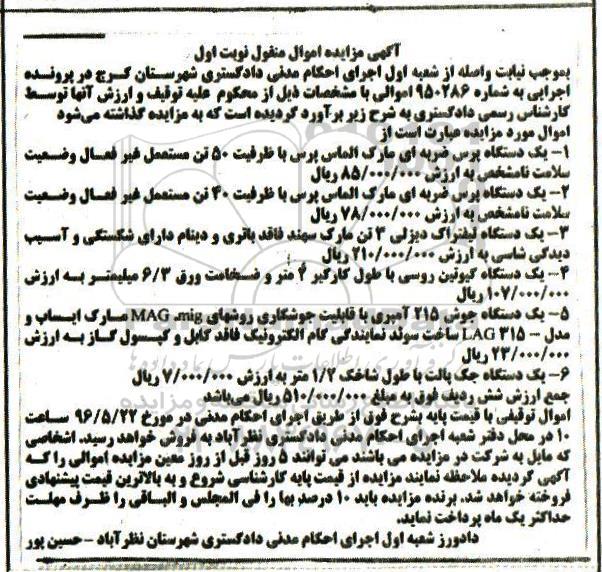 آگهی مزایده اموال منقول نوبت اول
بموجب نیابت واصله از شعبه اول اجرای احکام مدنی دادگستری شهرستان کرج در پرونده
اجرایی به شماره ۹۵۰۲۸۶ اموالی با مشخصات ذیل از محکوم علیه توقیف و ارزش آنها توسط
کارشناس رسمی دادگستری به شرح زیر برآورد گردیده است که به مزایده گذاشته می‌شود
اموال مورد مزایده عبارت است از
۱- یک دستگاه پرس ضربه ای مارک الماس پرس با ظرفیت ۵۰ تن مستعمل غیر فعال وضعیت
سلامت نامشخص به ارزش ۸۵/۰۰۰/۰۰۰ ریال
۲- یک دستگاه پرس ضربه ای مارک الماس پرس با ظرفیت ۴۰ تن مستعمل غیر فعال وضعیت
سلامت نامشخص به ارزش ۷۸/۰۰۰/۰۰۰ ریال
۳- یک دستگاه لیفتراک دیزلی ۳ تن مارک سهند فاقد باتری و دینام دارای شکستگی و آسیب
دیدگی شاسی به ارزش ۲۱۰/۰۰۰/۰۰۰ ریال
۴- یک دستگاه گیوتین روسی با طول کارگیر ۲ متر و ضخامت ورق ۶/۳ میلیمتر به ارزش
۱۰۷/۰۰۰/۰۰۰ ریال
۵- یک دستگاه جوش ۲۱۵ آمپری با قابلیت جوشکاری روشهای MAG ،mig مارک ایساب و
مدل - LAG ۳۱۵ ساخت سوئد نمایندگی گام الکترونیک فاقد کابل و کپسول گاز به ارزش
۲۳/۰۰۰/۰۰۰ ریال
۶- یک دستگاه جک پالت با طول شاخک ۱/۲ متر به ارزش ۷/۰۰۰/۰۰۰ ریال
جمع ارزش شش ردیف فوق به مبلغ ۵۱۰/۰۰۰/۰۰۰ ریال می‌باشد.
اموال توقیفی با قیمت پایه بشرح فوق از طریق اجرای احکام مدنی در مورخ ۹۶/۵/۲۲ ساعت
۱۰ در محل دفتر شعبه اجرای احکام مدنی دادگستری نظرآباد به فروش خواهد رسید. اشخاصی
که مایل به شرکت در مزایده می باشند می توانند ۵ روز قبل از روز معین مزایده اموالی را که
آگهی گردیده ملاحظه نمایند مزایده از قیمت پایه کارشناسی شروع و به بالاترین قیمت پیشنهادی
فروخته خواهد شد. برنده مزایده باید ۱۰ درصد بها را فی المجلس و الباقی را ظرف مهلت
حداکثر یک ماه پرداخت نماید.
دادورز شعبه اول اجرای احکام مدنی دادگستری شهرستان نظرآباد - حسین پور